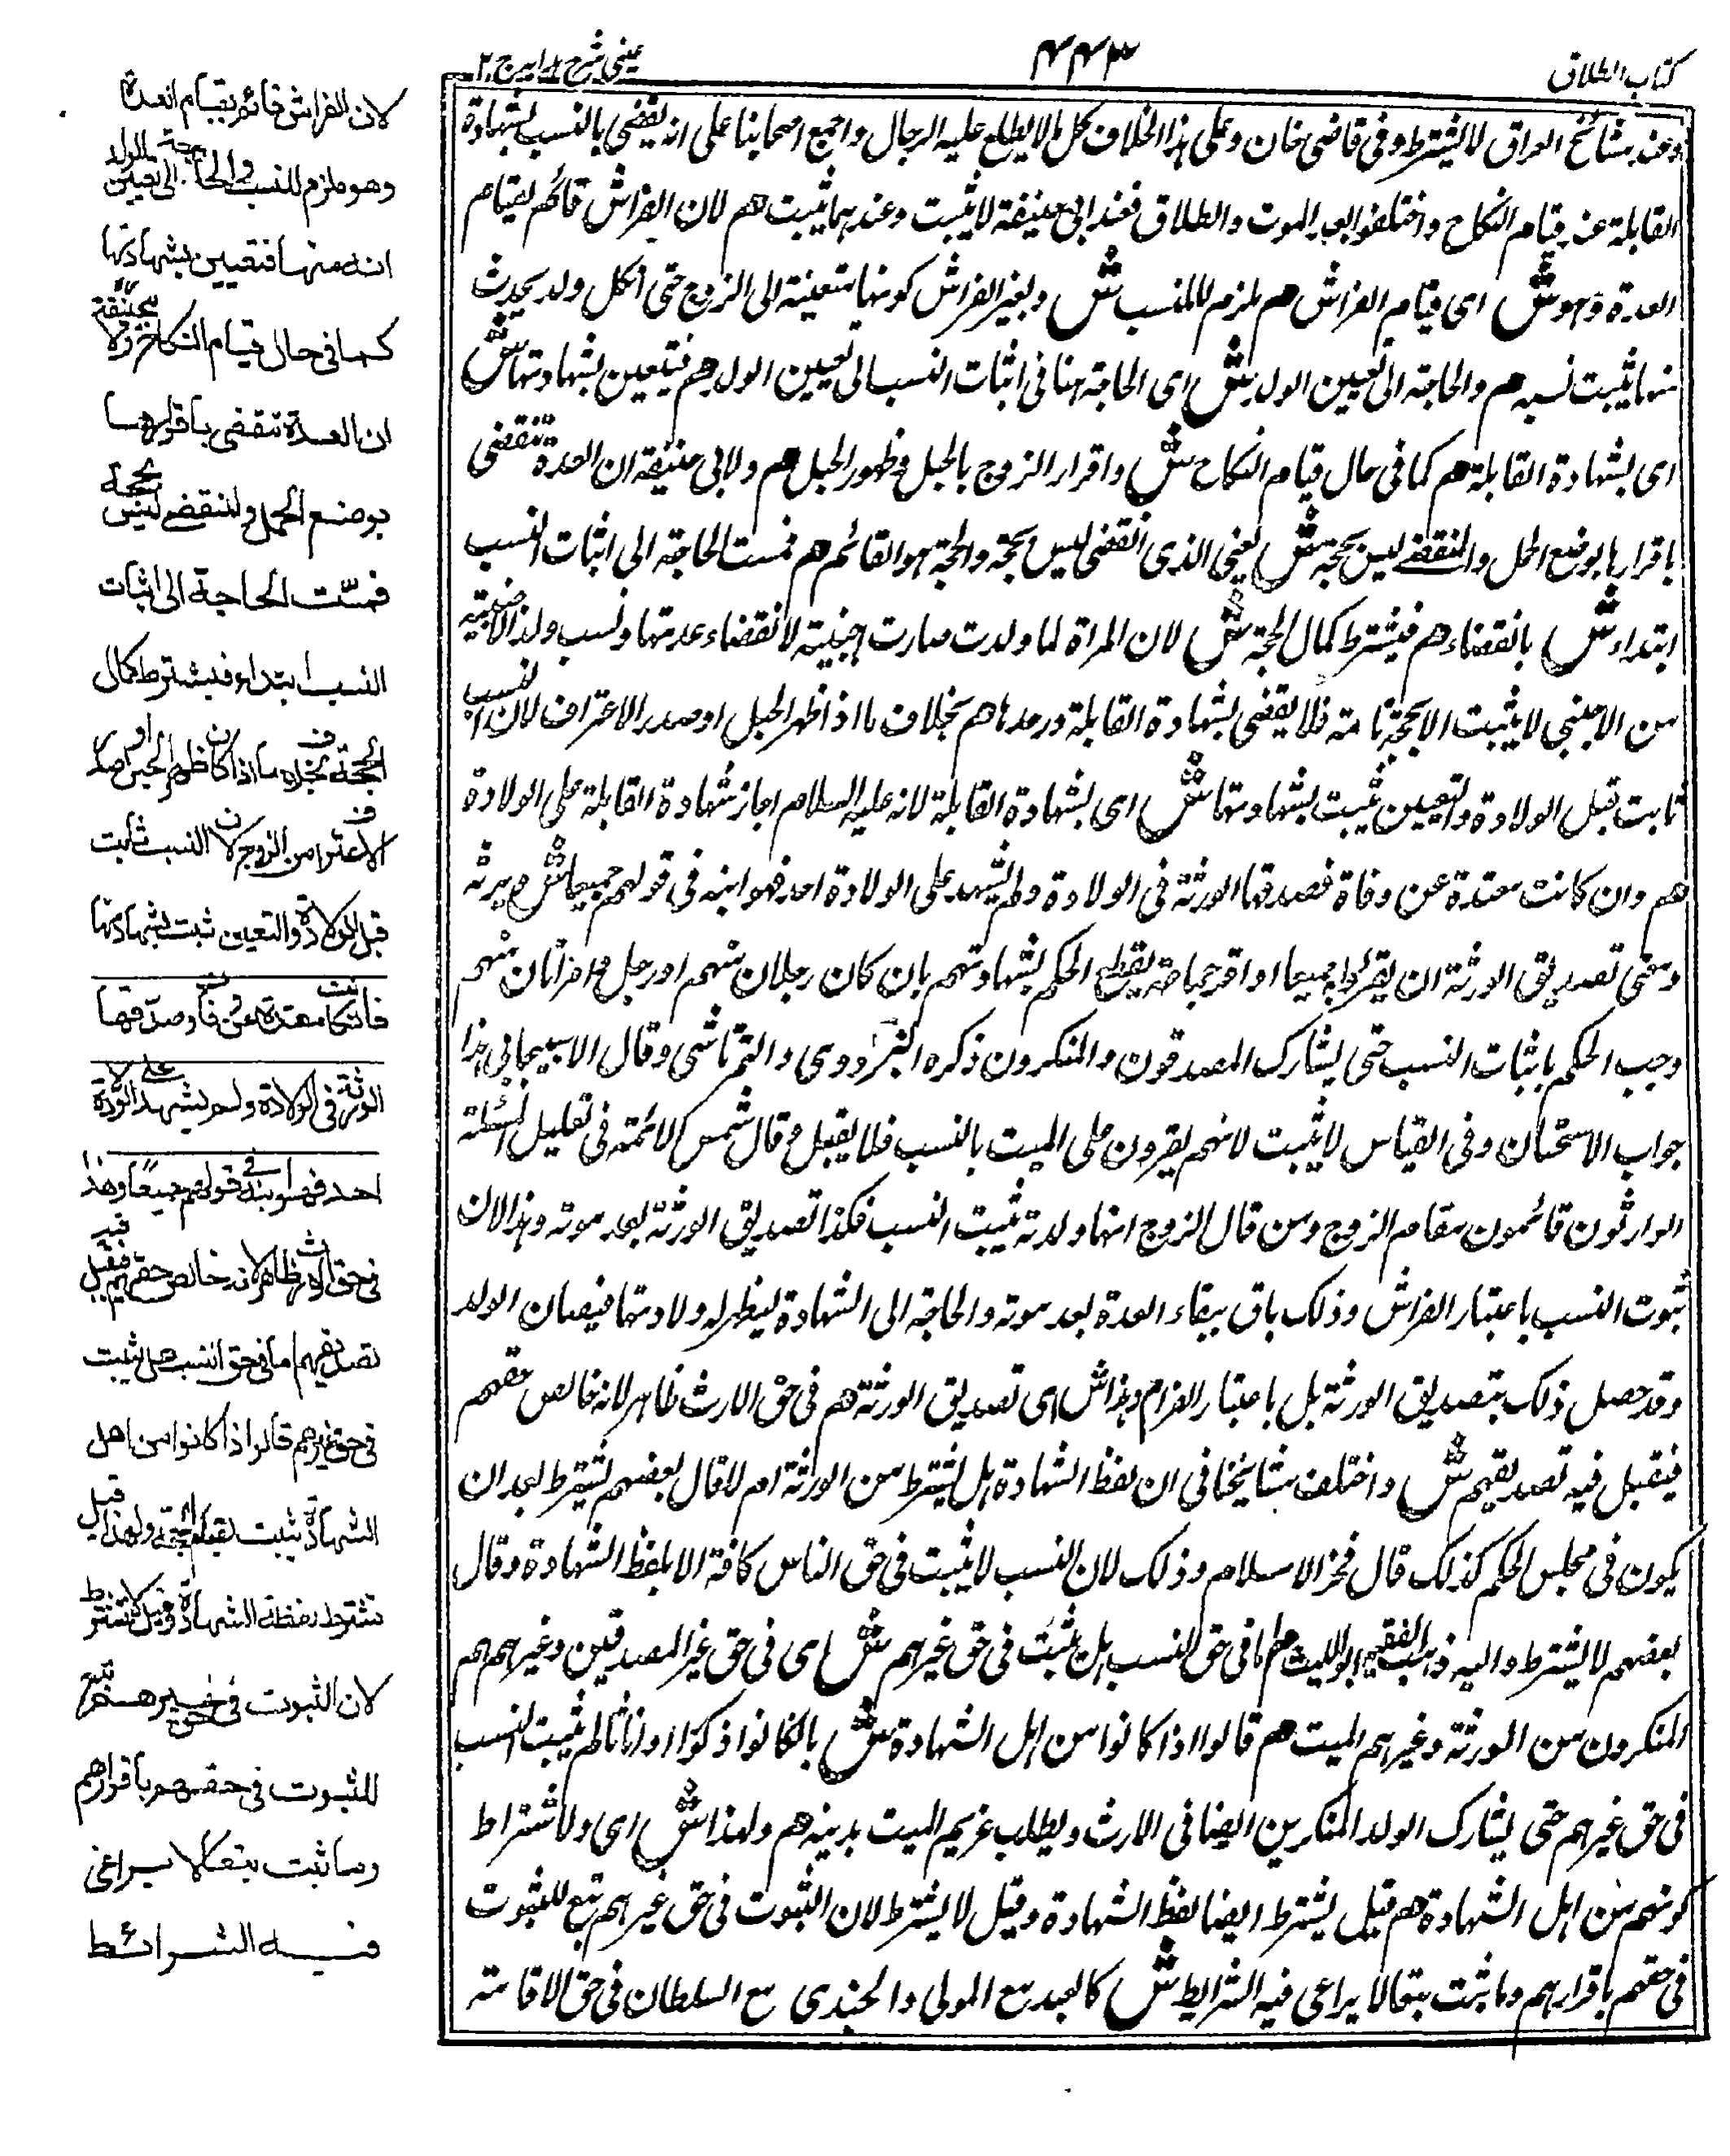 كتاب الطلاق
٤٤٣
عینی شرح هدایہ ج ٢
وعند مشائخ العراق لا يشترط وفى قاضى خان وعلى هذا الخلاف كل ما لا يطلع عليه الرجال واجمع اصحابنا على انه يقضى بالنسب بشهادة
القابلة عند قيام النكاح واختلفوا بعد الموت والطلاق فعند ابى حنيفة لا يثبت وعندهما يثبت هم لان الفراش قائم بقيام
العدة وهو ش اى قيام الفراش هم ملزم للنسب ش وبغير الفراش كونها متعينة الى الزوج حتى ان كل ولد يحدث
منها يثبت نسبه هم والحاجة الى تعيين الولد ش اى الحاجة هنا فى اثبات النسب الى تعيين الولد هم فيتعين بشهادتها ش
اى بشهادة القابلة هم كما فى حال قيام النكاح ش واقرار الزوج بالحبل وظهور الحبل هم ولابى حنيفة ان العدة تنقضى
باقرارها بوضع الحمل والمنقضى ليس بحجة ش يعنى الذى انقضى ليس بحجة والحجة هو القائم هم فمست الحاجة الى اثبات النسب
ابتداء ش بانقضاء هم فيشترط كمال الحجة ش لان المراة لما ولدت صارت اجنبية لانقضاء عدتها ونسب ولد الاجنبية
من الاجنبى لا يثبت الا بحجة تامة فلا يقضى بشهادة القابلة وحدها هم بخلاف ما اذا ظهر الحبل او صدر الاعتراف لان النسب
ثابت قبل الولادة والتعيين يثبت بشهادتها ش اى بشهادة القابلة لانه عليه السلام اجاز شهادة القابلة على الولادة
هم وان كانت معتدة عن وفاة فصدقها الورثة فى الولادة ولم يشهد على الولادة احد فهو ابنه فى قولهم جميعا ش ويرثه
ومعنى تصديق الورثة ان يقروا به جميعا او اقر جماعة يقطع الحكم بشهادتهم بان كان رجلان منهم او رجل وامراتان منهم
وجب الحكم باثبات النسب حتى يشارك المصدقون والمنكرون ذكره البزدوى والتمرتاشى وقال الاسبيجابى هذا
جواب الاستحسان وفى القياس لا يثبت لانهم يقرون على الميت بالنسب فلا يقبل وقال شمس الائمة فى تعليل المسئلة
الوارثون قائمون مقام الزوج ومن قال الزوج انها ولدته يثبت النسب فكذا تصديق الورثة بعد موته وهذا لان
ثبوت النسب باعتبار الفراش وذلك باق ببقاء العدة بعد موته والحاجة الى الشهادة ليظهر له ولادتها فيصان الولد
وقد حصل ذلك بتصديق الورثة بل باعتبار وهذا ش اى تصديق الورثة هم فى حق الارث ظاهر لانه خالص حقهم
فيقبل فيه تصديقهم ش واختلف مشايخنا فى ان لفظ الشهادة هل يشترط من الورثة ام لا قال بعضهم يشترط بعد ان
يكون فى مجلس الحكم كذلك قال فخر الاسلام وذلك لان النسب لا يثبت فى حق الناس كافة الا بلفظ الشهادة وقال
بعضهم لا يشترط واليه ذهب الفقيه ابو الليث هم اما فى حق النسب هل يثبت فى حق غيرهم ش اى فى حق غير المصدقين وغيرهم هم
المنكرون من الورثة وغيرهم الميت هم قالوا اذا كانوا من اهل الشهادة ش بان كانوا ذكورا او اناثا لم يثبت النسب
فى حق غيرهم حتى يشارك الولد المنكرين ايضا فى الارث ويطلب غريم الميت بدينه هم ولهذا ش اى ولاشتراط
كونهم من اهل الشهادة هم قيل يشترط ايضا لفظ الشهادة وقيل لا يشترط لان الثبوت فى حق غيرهم تبع للثبوت
فى حقهم باقرارهم وما ثبت تبعا لا يراعى فيه الشرايط ش كالعبد مع المولى والجندى مع السلطان فى حق الاقامة
لان الفراش قائم بقيام العدة
وهو ملزم للنسب والحاجة الى تعيين الولد
انه منها فتعين بشهادتها
كما فى حال قيام النكاح ولابى حنيفة
ان العدة تنقضى باقرارها
بوضع الحمل والمنقضى ليس بحجة
فمست الحاجة الى اثبات
النسب ابتداء فيشترط كمال
الحجة بخلاف ما اذا كان ظهر الحبل او صدر
الاعتراف من الزوج لان النسب ثابت
قبل الولادة والتعين ثبت بشهادتها
فان كانت معتدة عن وفاة وصدقها
الورثة فى الولادة ولم يشهد على الولادة
احد فهو ابنه فى قولهم جميعا وهذا
فى حق الارث ظاهر لانه خالص حقهم فيقبل فيه
تصديقهم اما فى حق النسب هل يثبت
فى حق غيرهم قالوا اذا كانوا من اهل
الشهادة يثبت لقيام الحجة ولهذا قيل
تشترط لفظة الشهادة وقيل لا تشترط
لان الثبوت فى حق غيرهم تبع
للثبوت فى حقهم باقرارهم
وما ثبت تبعا لا يراعى
فيه الشرائط